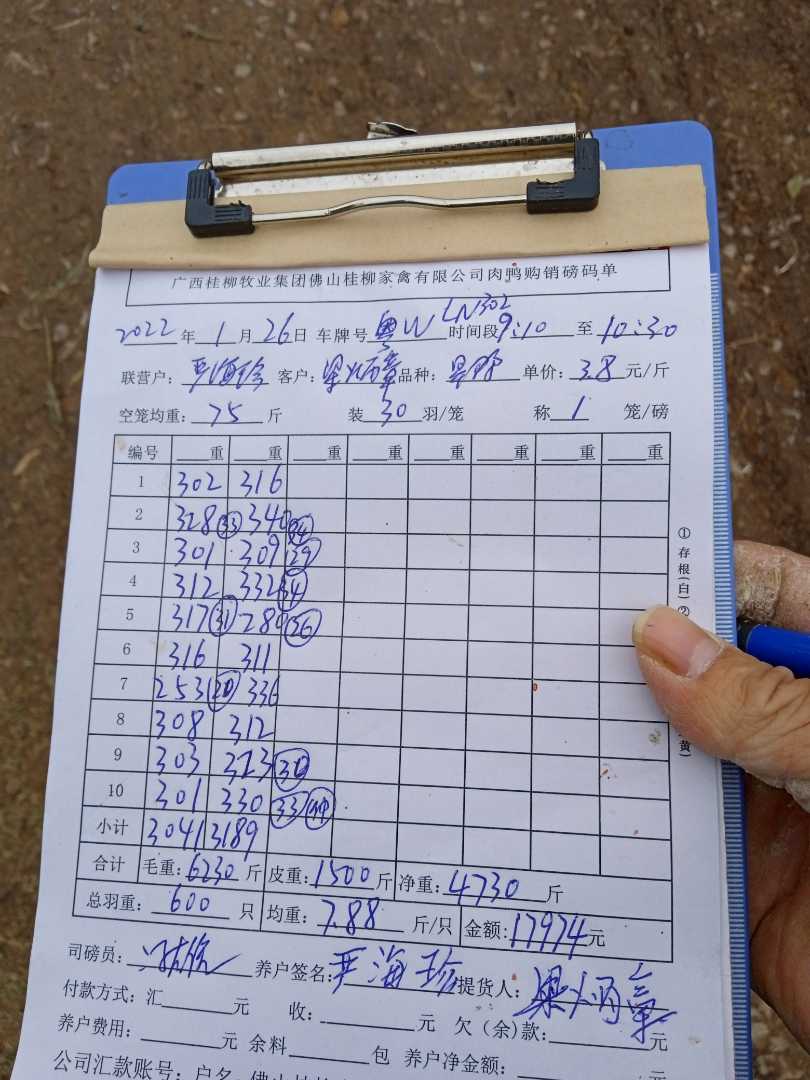 广西桂柳牧业集团佛山桂柳家禽有限公司肉鸭购销磅码单
2022年1月26日 车牌号 粤W LN302 时间段 9:10 至 10:30
联营户: 严海珍 客户: 梁炳章 品种: 单价: 3.8 元/斤
空笼均重: 75 斤 装 30 羽/笼 称 1 笼/磅
编号 重 重 重 重 重 重 重 重
1 302 316
2 328 33 340 34
3 301 309 29
4 312 332 34
5 317 31 280 26
6 316 311
7 253 20 336
8 308 312
9 303 323 30
10 301 330 33
小计 3041 3189
合计 毛重: 6230 斤 皮重: 1500 斤 净重: 4730 斤
总羽重: 600 只 均重: 7.88 斤/只 金额: 17974 元
司磅员: 养户签名: 严海珍 提货人: 梁炳章
付款方式: 汇 元 收: 元 欠(余)款: 元
养户费用: 元 余料 包 养户净金额: 元
公司汇款账号: 户名: 佛山桂
①存根(白)②
黄)